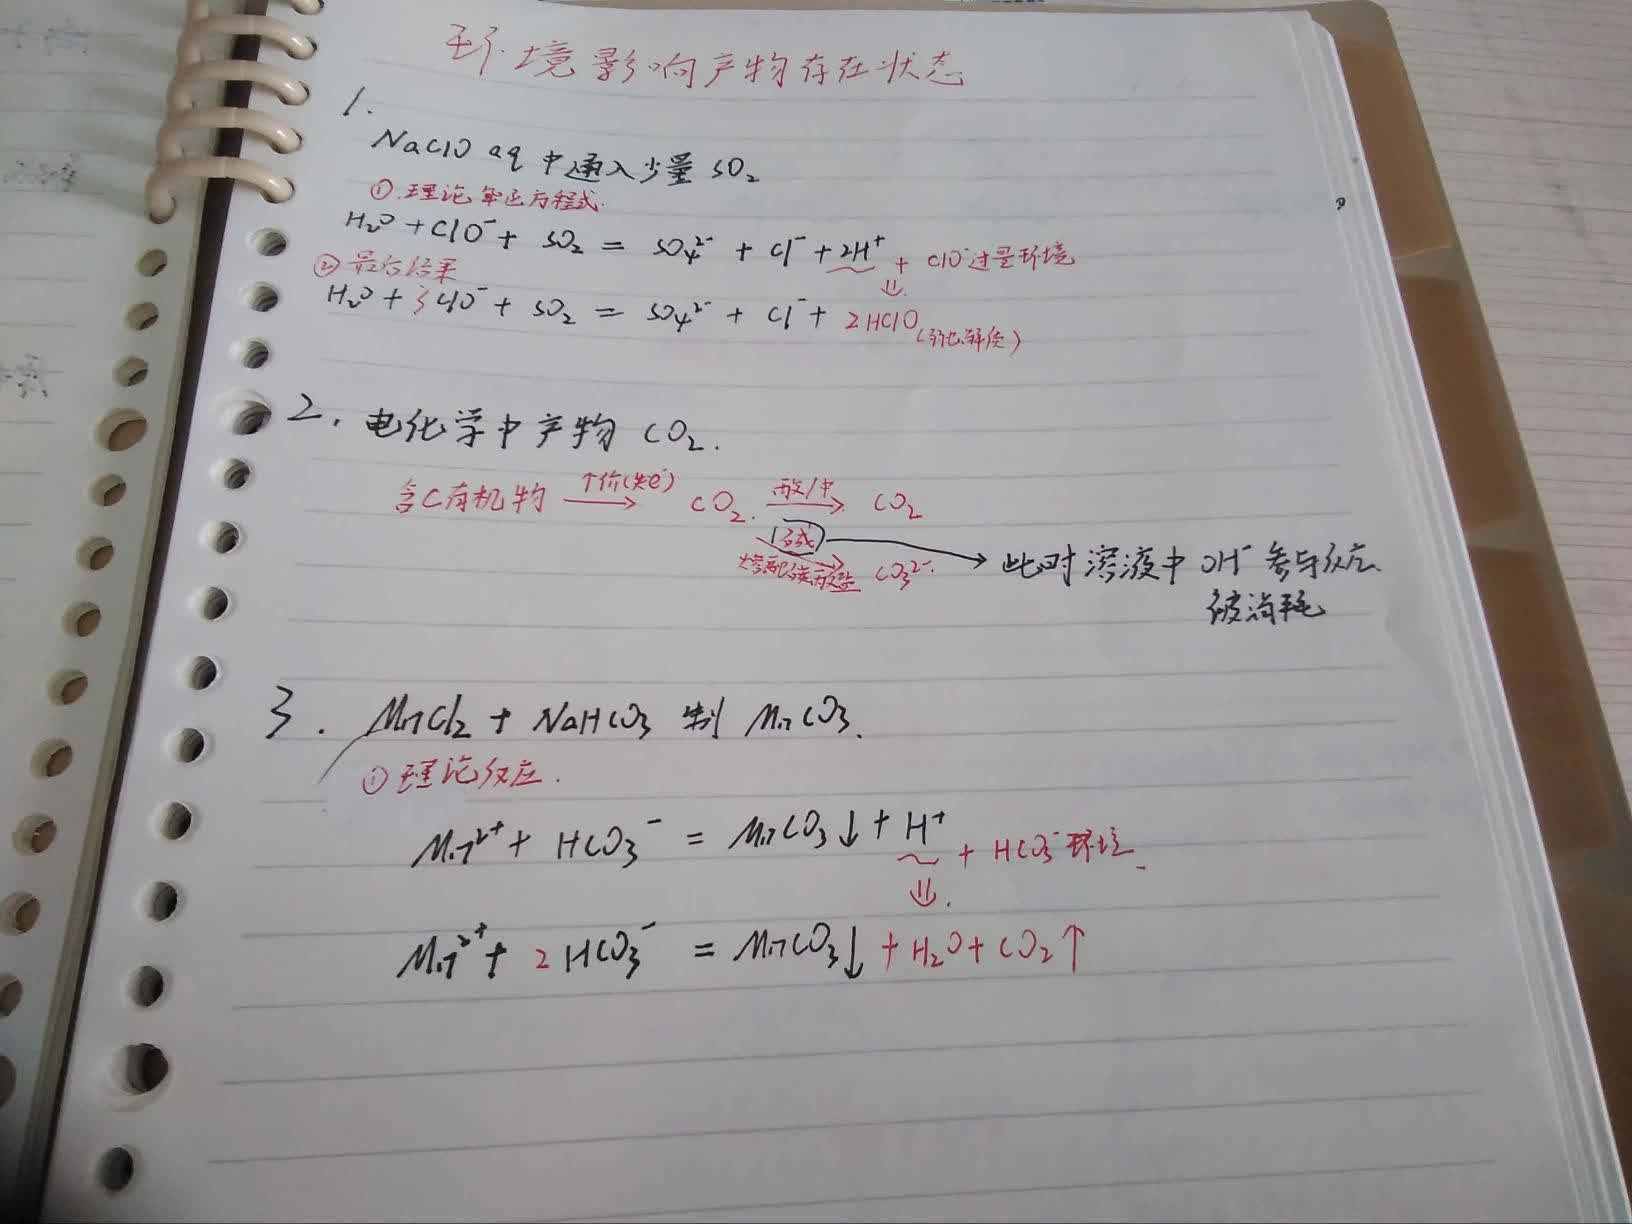 环境影响产物存在状态
1.
NaClO aq 中通入少量 SO₂
① 理论 方程式.
H₂O + ClO⁻ + SO₂ = SO₄²⁻ + Cl⁻ + 2H⁺ + ClO⁻过量环境
② 最后结果 ⇓
H₂O + 3ClO⁻ + SO₂ = SO₄²⁻ + Cl⁻ + 2HClO (弱电解质)
2. 电化学中产物 CO₂.
含C有机物 ↑价(失e⁻) → CO₂. 酸/中 → CO₂
碱 → 此时溶液中 OH⁻ 参与反应.
熔融碳酸盐 → CO₃²⁻.
被消耗
3. MnCl₂ + NaHCO₃ 制 MnCO₃.
① 理论反应.
Mn²⁺ + HCO₃⁻ = MnCO₃↓ + H⁺ + HCO₃⁻ 环境
⇓.
Mn²⁺ + 2HCO₃⁻ = MnCO₃↓ + H₂O + CO₂↑